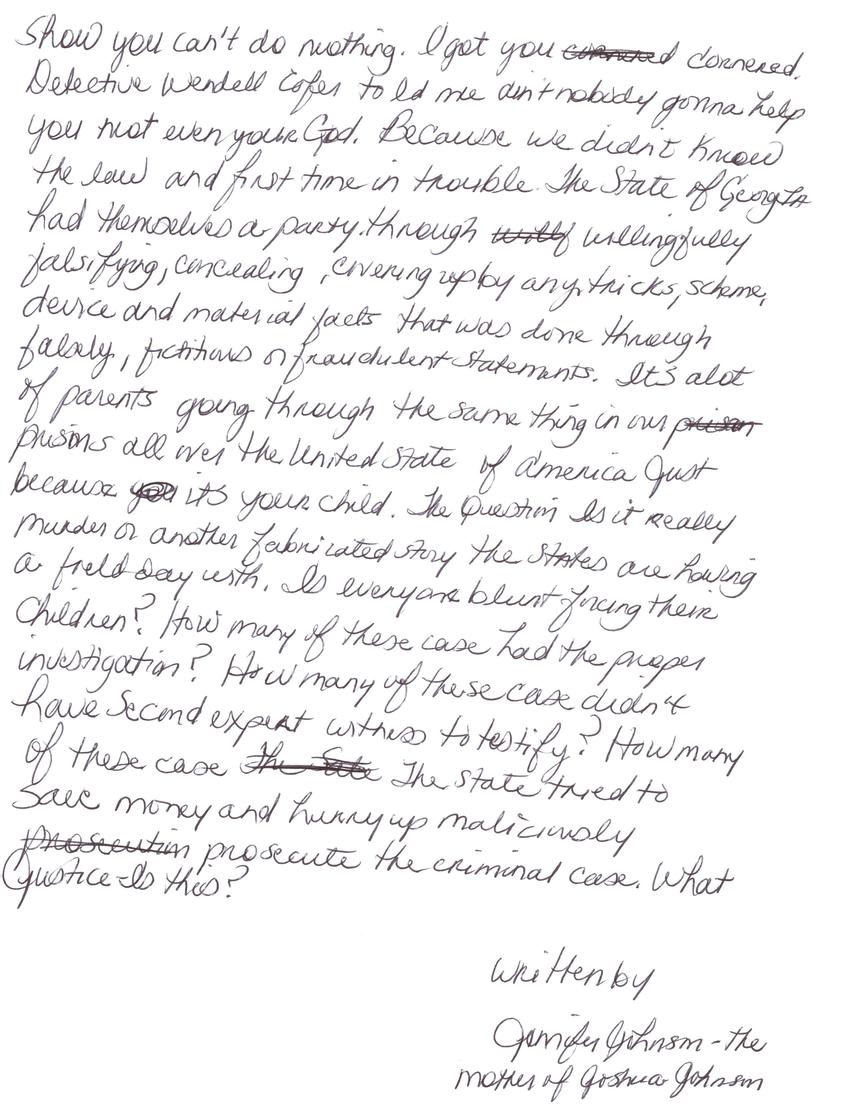 Show you can't do nothing. I got you cornered cornered.
Detective Wendell Cofer told me ain't nobody gonna help
you not even your God. Because we didn't know
the law and first time in trouble. The State of Georgia
had themselves a party. through willf willingfully
falsifying, concealing, covering up by any, tricks, scheme,
device and material facts that was done through
falsely, fictitious or fraudulent statements. It's alot
of parents going through the same thing in our prison
prisons all over the United State of America Just
because you it's your child. The Question Is it really
murder or another fabricated story the states are having
a field day with. Is everyone blunt forcing their
Children? How many of these case had the proper
investigation? How many of these case didn't
have Second expert witness to testify? How many
of these case the State The State tried to
Save money and hurry up maliciously
prosecution prosecute the criminal case. What
Justice - Is this?
Written by
Jennifer Johnson - the
mother of Joshua Johnson